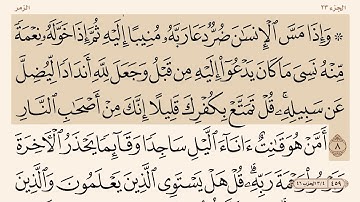 الجزء ٢٣ الزمر
۞ وَإِذَا مَسَّ ٱلْإِنسَٰنَ ضُرٌّ دَعَا رَبَّهُۥ مُنِيبًا إِلَيْهِ ثُمَّ إِذَا خَوَّلَهُۥ نِعْمَةً
مِّنْهُ نَسِىَ مَا كَانَ يَدْعُوٓا۟ إِلَيْهِ مِن قَبْلُ وَجَعَلَ لِلَّهِ أَندَادًا لِّيُضِلَّ
عَن سَبِيلِهِۦ ۚ قُلْ تَمَتَّعْ بِكُفْرِكَ قَلِيلًا ۖ إِنَّكَ مِنْ أَصْحَٰبِ ٱلنَّارِ
٨ أَمَّنْ هُوَ قَٰنِتٌ ءَانَآءَ ٱلَّيْلِ سَاجِدًا وَقَآئِمًا يَحْذَرُ ٱلْـَٔاخِرَةَ
رَبِّهِۦ ۗ قُلْ هَلْ يَسْتَوِى ٱلَّذِينَ يَعْلَمُونَ وَٱلَّذِينَ
٤٥٩ ٣/٤ الحزب ٤٦